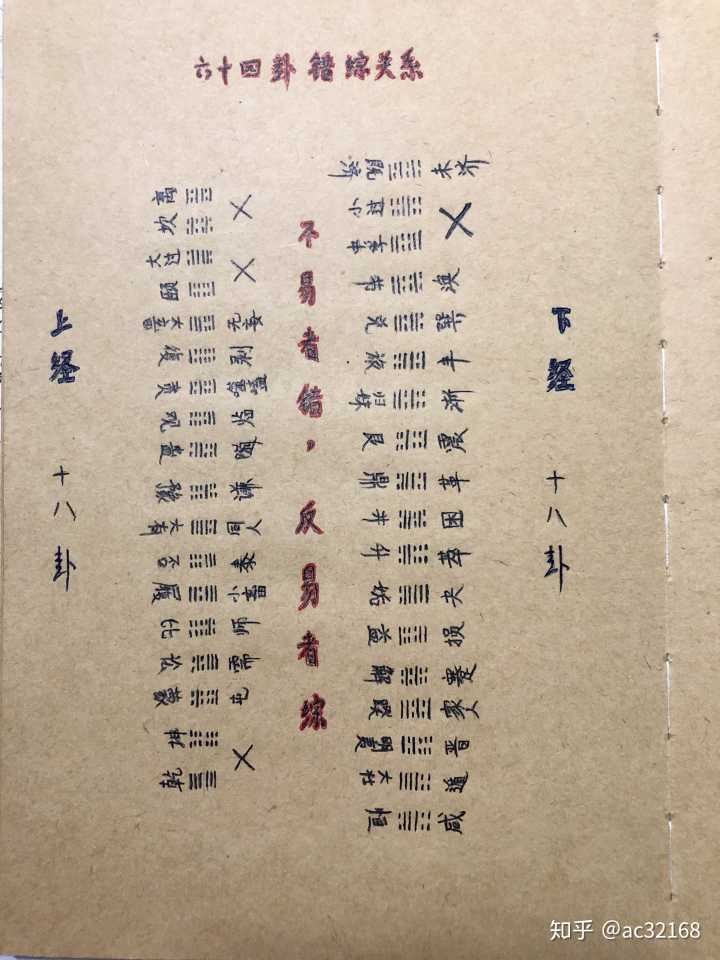 六十四卦错综关系
上经 十八卦
离
坎
大过
颐
大畜 无妄
復 剥
贲 噬嗑
观 临
蛊 随
豫 谦
大有 同人
否 泰
履 小畜
比 师
讼 需
蒙 屯
坤
乾
不易者错，反易者综
既济 未济
小过
中孚
节 涣
兑 巽
旅 丰
归妹 渐
艮 震
鼎 革
井 困
升 萃
姤 夬
益 损
解 蹇
睽 家人
明夷 晋
大壮 遁
恒 咸
下经 十八卦
知乎 @ac32168